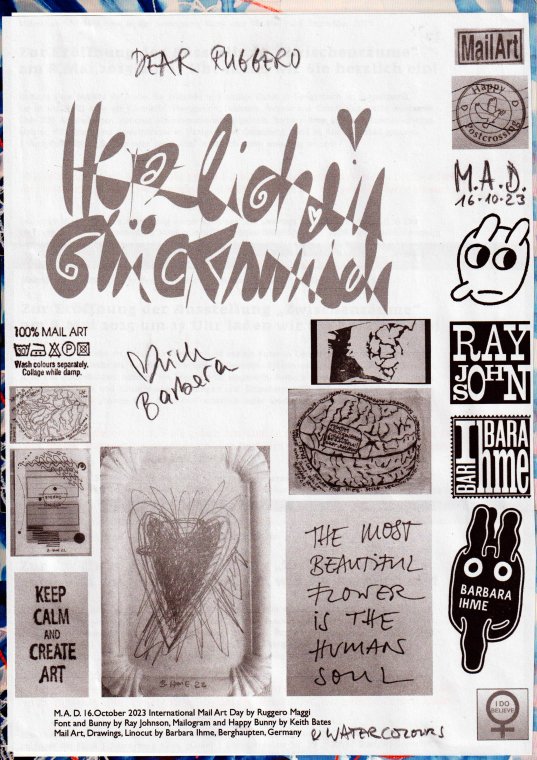 DEAR RUGGERO
MailArt
Happy
Postcrossing
M.A.D.
16.10.23
Herzlichen
Glückwunsch
100% MAIL ART
Wash colours separately.
Collage while damp.
RAY
JOHN
SON
Barbara
BARBARA
Ihme
BARBARA
IHME
KEEP
CALM
AND
CREATE
ART
B. IHME 22
THE MOST
BEAUTIFUL
FLOWER
IS THE
HUMAN
SOUL
I DO
BELIEVE
M.A. D. 16.October 2023 International Mail Art Day by Ruggero Maggi
Font and Bunny by Ray Johnson, Mailogram and Happy Bunny by Keith Bates
Mail Art, Drawings, Linocut by Barbara Ihme, Berghaupten, Germany
& WATERCOLOURS